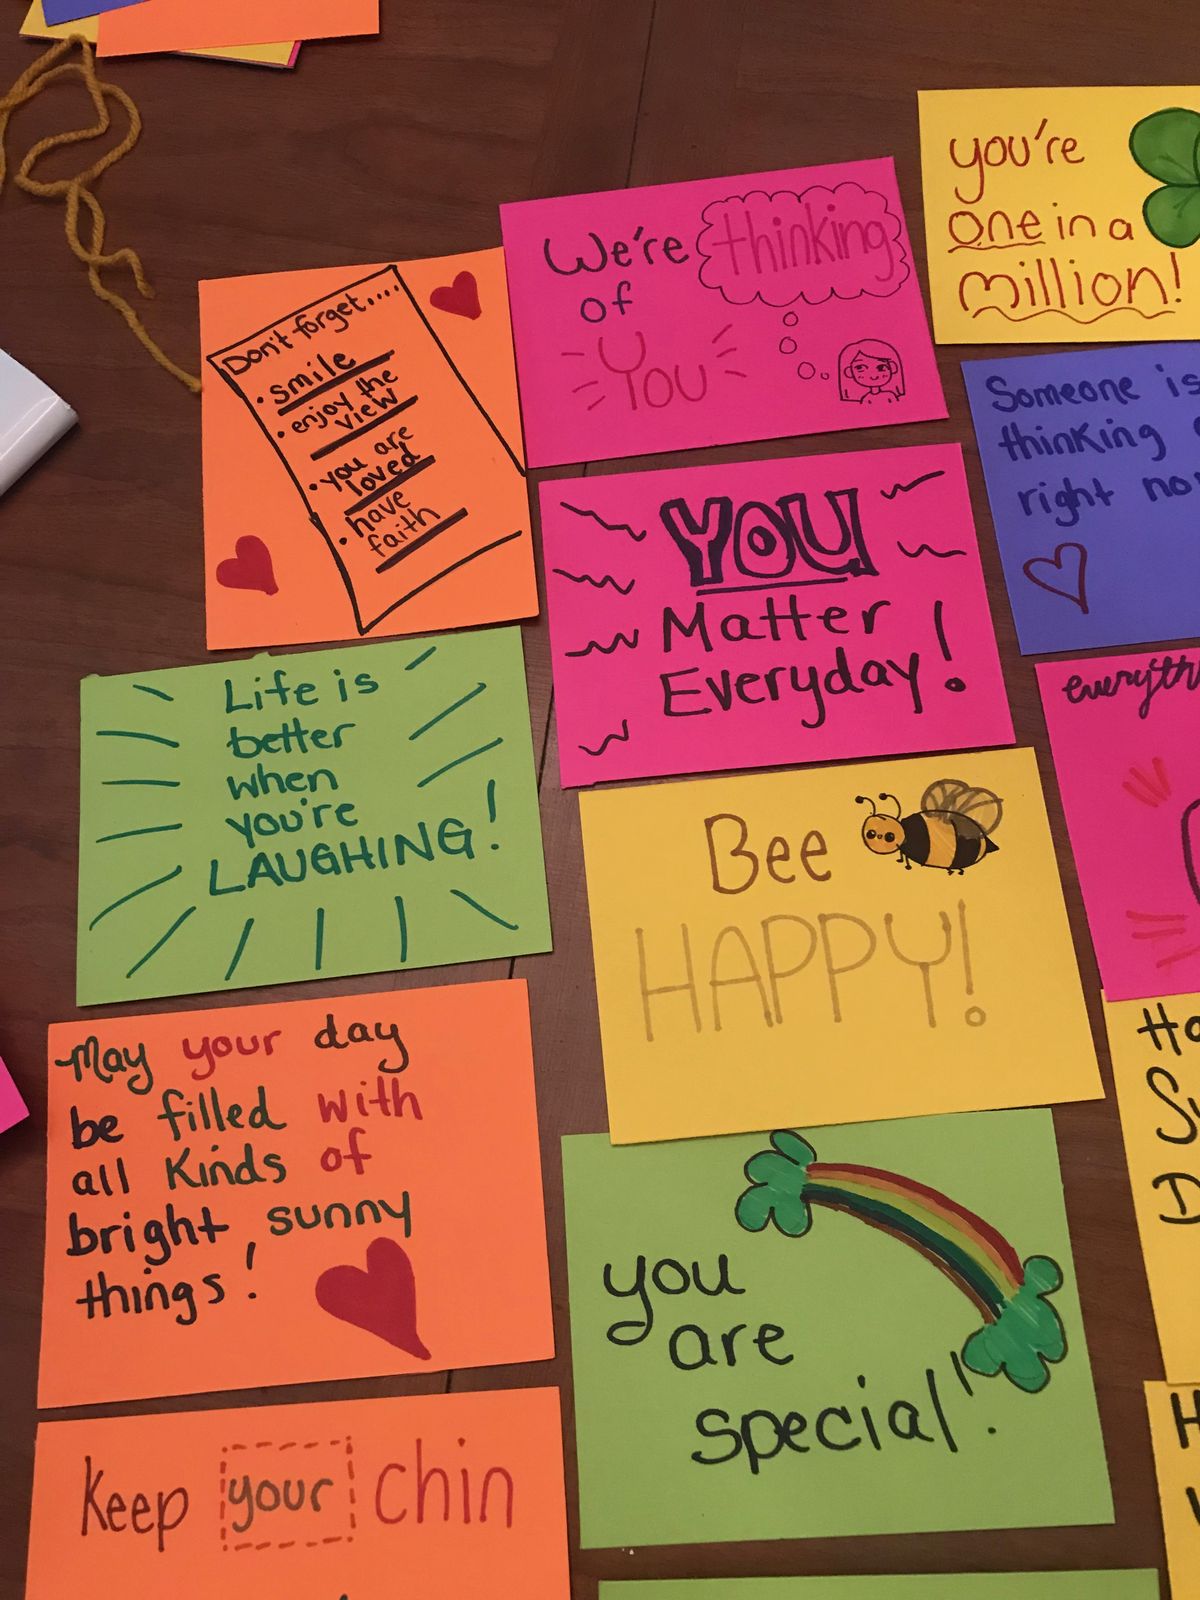 Don't forget....
• smile
• enjoy the
view
• you are
loved
• have
faith
We're thinking
of
YOU
you're
one in a
million!
Someone is
thinking
right
YOU
Matter
Everyday!
Life is
better
when
you're
LAUGHING!
Bee
HAPPY!
May your day
be filled with
all kinds of
bright, sunny
things!
you
are
special!
Keep your chin